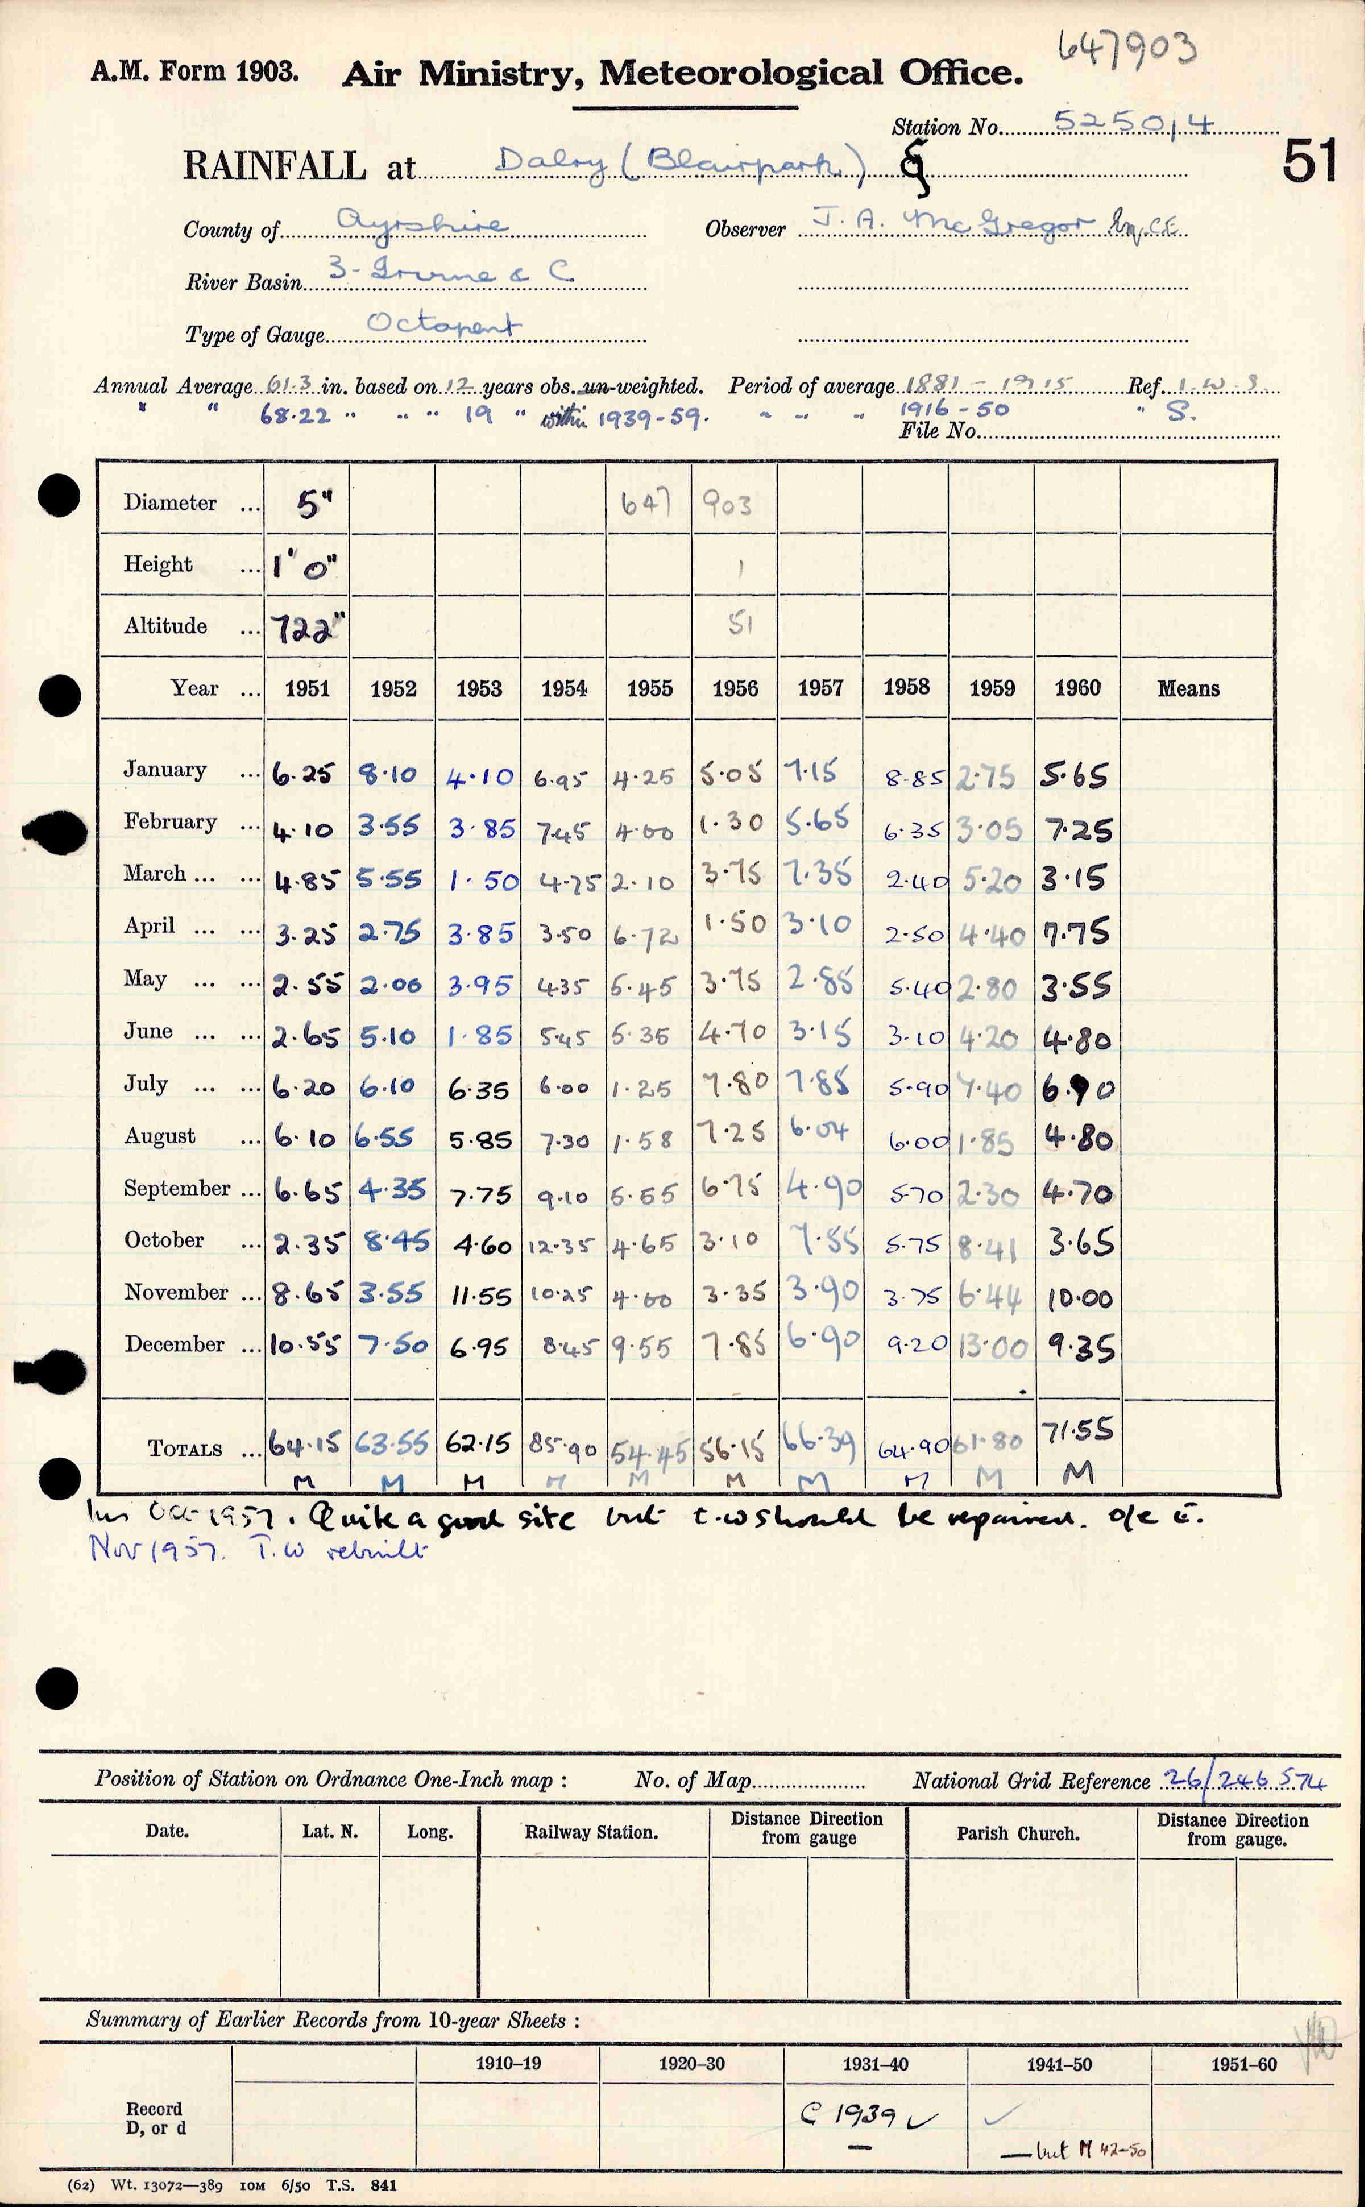 647903
A.M. Form 1903. Air Ministry, Meteorological Office.
Station No. 5250/4
RAINFALL at Dalry (Blairpark) 51
County of Ayrshire Observer J. A. McGregor Esq. C.E.
River Basin 3 - Irvine & C
Type of Gauge Octapent
Annual Average 61.3 in. based on 12 years obs. un-weighted. Period of average 1881 - 1915 Ref. I. W. S.
" " 68.22 " " " 19 " within 1939-59. " " " 1916-50 " S.
File No.
Diameter ... 5" 647 903
Height ... 1' 0" 1
Altitude ... 722" 51
Year ... 1951 1952 1953 1954 1955 1956 1957 1958 1959 1960 Means
January ... 6.25 8.10 4.10 6.95 4.25 5.05 7.15 8.85 2.75 5.65
February ... 4.10 3.55 3.85 7.45 4.00 1.30 5.65 6.35 3.05 7.25
March ... ... 4.85 5.55 1.50 4.75 2.10 3.75 7.35 2.40 5.20 3.15
April ... ... 3.25 2.75 3.85 3.50 6.72 1.50 3.10 2.50 4.40 7.75
May ... ... 2.55 2.00 3.95 4.35 5.45 3.75 2.85 5.40 2.80 3.55
June ... ... 2.65 5.10 1.85 5.45 5.35 4.70 3.15 3.10 4.20 4.80
July ... ... 6.20 6.10 6.35 6.00 1.25 7.80 7.85 5.90 7.40 6.90
August ... 6.10 6.55 5.85 7.30 1.58 7.25 6.04 6.00 1.85 4.80
September ... 6.65 4.35 7.75 9.10 5.55 6.75 4.90 5.70 2.30 4.70
October ... 2.35 8.45 4.60 12.35 4.65 3.10 7.55 5.75 8.41 3.65
November ... 8.65 3.55 11.55 10.25 4.00 3.35 3.90 3.75 6.44 10.00
December ... 10.55 7.50 6.95 8.45 9.55 7.85 6.90 9.20 13.00 9.35
TOTALS ... 64.15 63.55 62.15 85.90 54.45 56.15 66.39 64.90 61.80 71.55
M M M M M M M M M M
Ins Oct 1957. Quite a good site but t.w should be repaired. o/c E.
Nov 1957. T.W rebuilt
Position of Station on Ordnance One-Inch map : No. of Map National Grid Reference 26/246 574
Date. Lat. N. Long. Railway Station. Distance from Direction gauge Parish Church. Distance from Direction gauge.
Summary of Earlier Records from 10-year Sheets :
1910–19 1920–30 1931–40 1941–50 1951–60
Record D, or d C 1939 ✓ ✓
— but M 42-50
(62) Wt. 13072—389 10M 6/50 T.S. 841